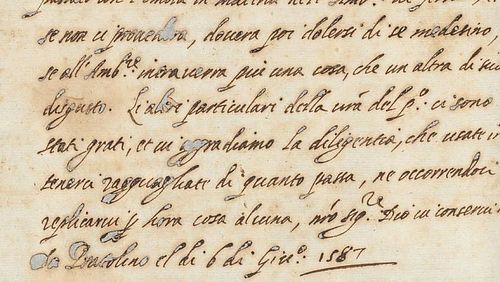 se non ci provederà, doverà poi dolersi di se medesimo,
se all'Amb.re interverrà più una cosa, che un altra di suo
disgusto. Li altri particulari della vra del p.o ci sono
stati grati, et vi aggradiamo la diligentia, che usate in
tenerci ragguagliati di quanto passa, ne occorrendoci
replicarvi p hora cosa alcuna, nro Sig.re Dio vi conservi
Da Pratolino el di 6 di Giu.o 1587